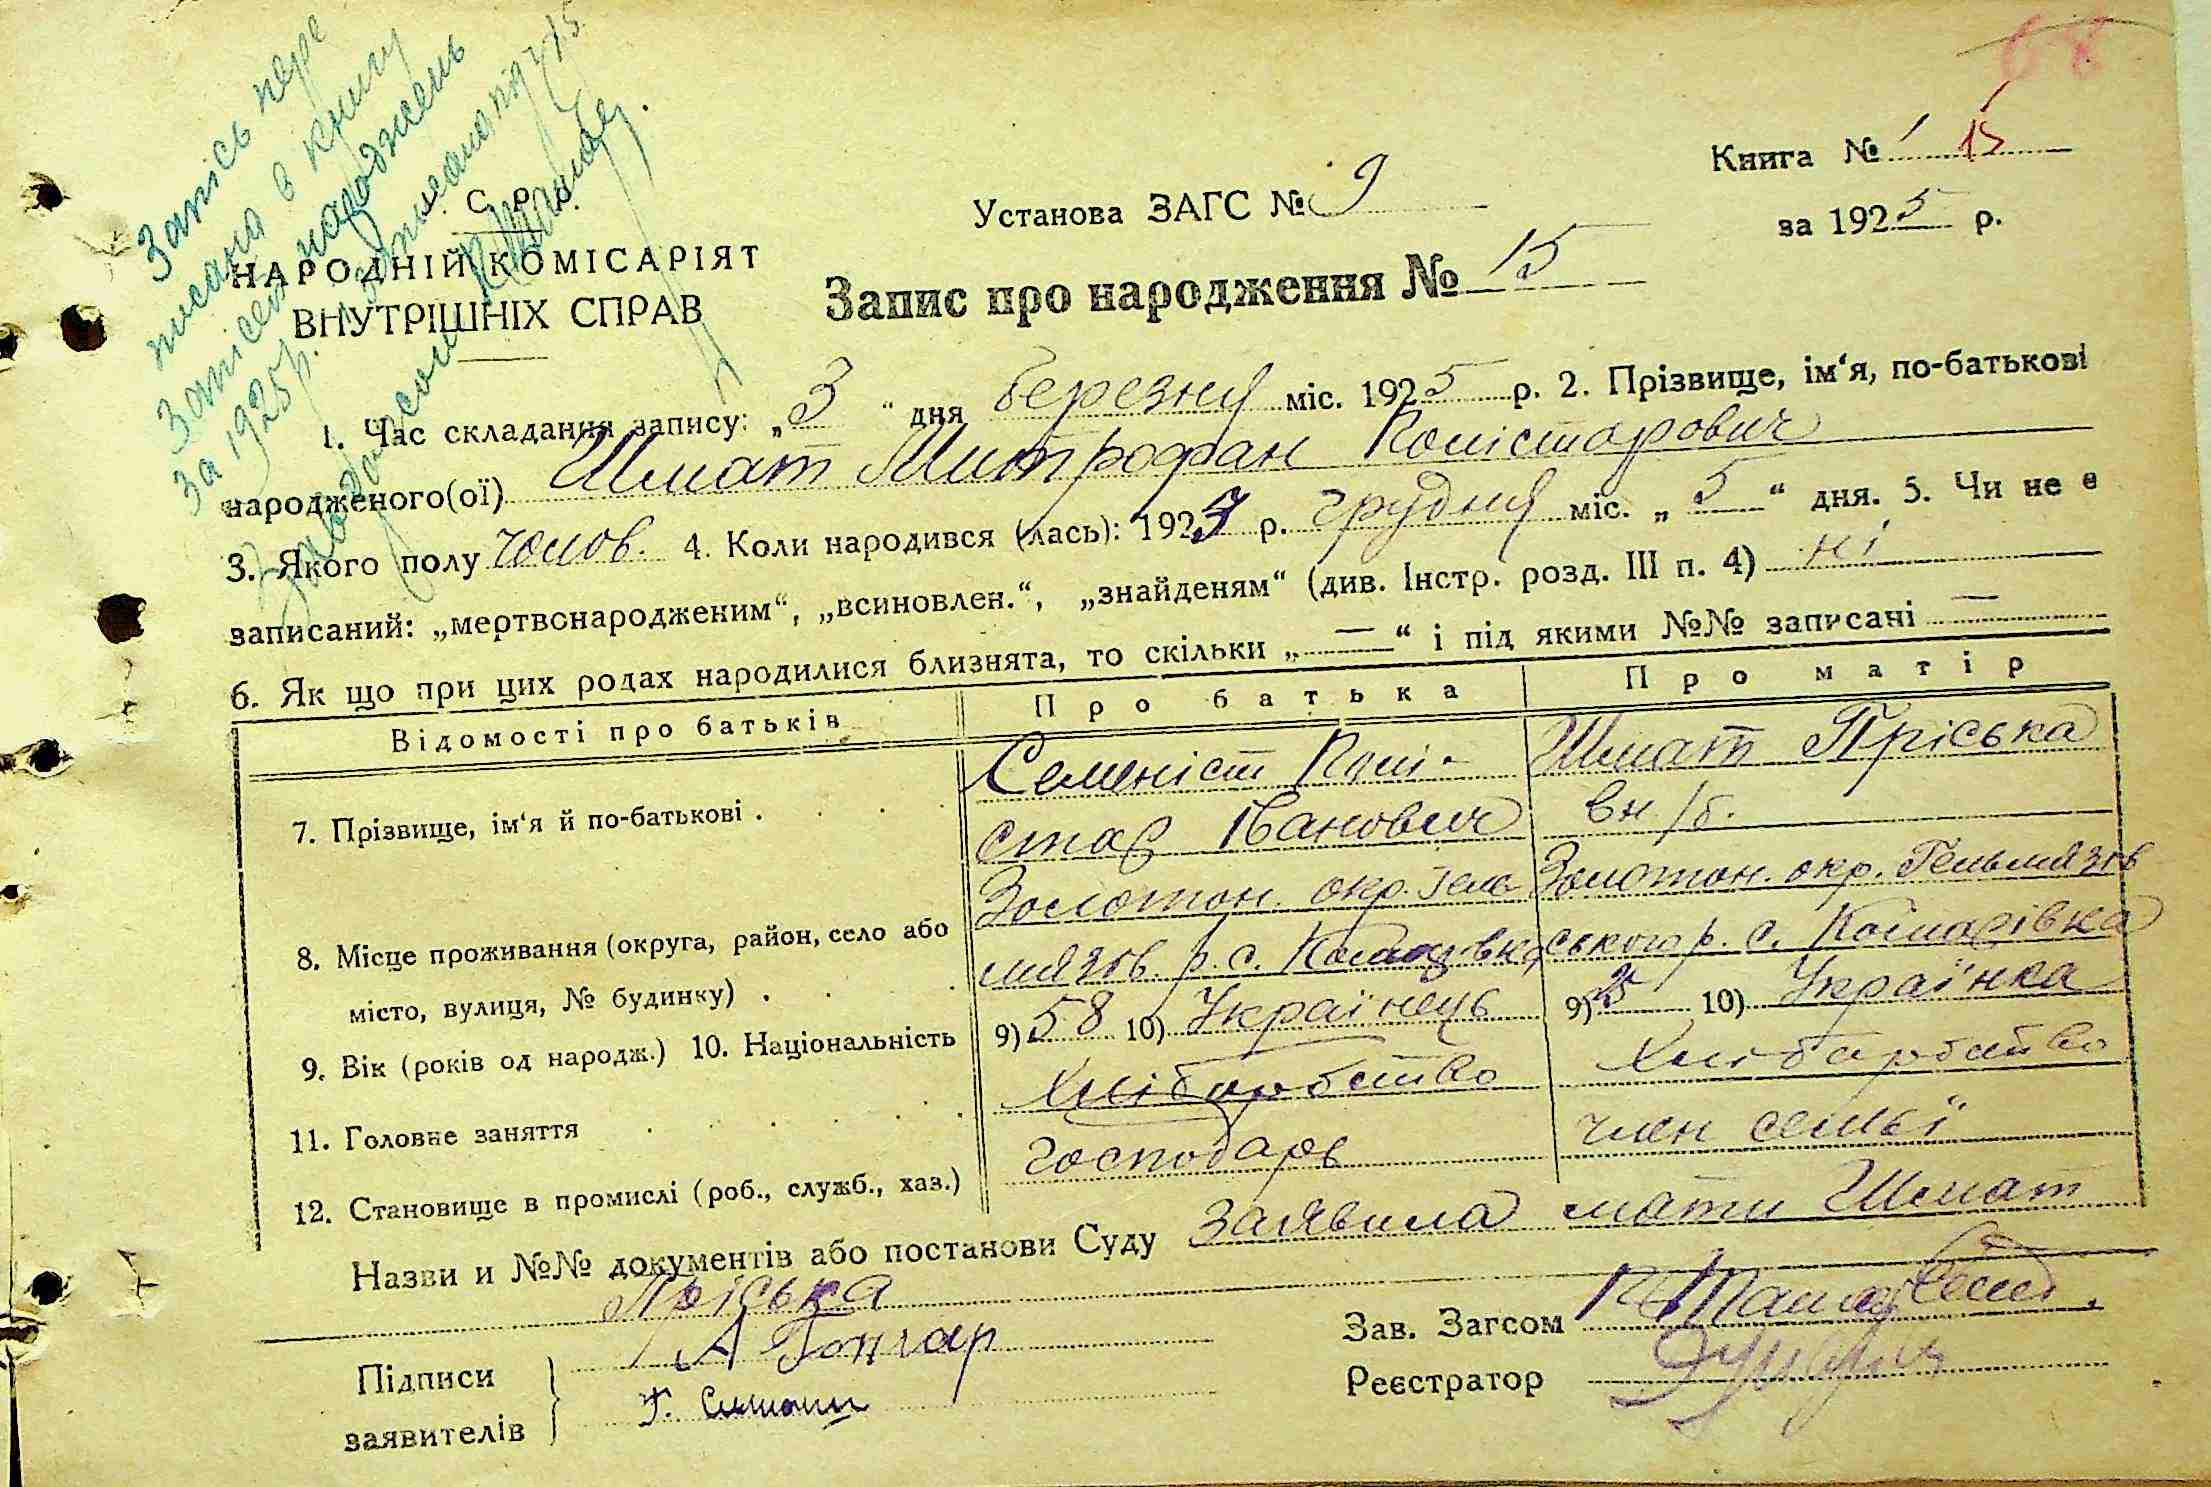 Запісь пере
писана в книгу
Записей народжень
за 1925 р. записано під № 15
С. Р.
НАРОДНІЙ КОМІСАРІЯТ
ВНУТРІШНІХ СПРАВ
68
Установа ЗАГС № 9
Книга № 1 15
за 1925 р.
Запис про народження № 15
1. Час складання запису: „3“ дня березня міс. 1925 р. 2. Прізвище, ім‘я, по-батькові
народженого(ої) Шмат Митрофан Полістарович
3. Якого полу чолов. 4. Коли народився (лась): 1923 р. грудня міс. „5“ дня. 5. Чи не е
записаний: „мертвонародженим“, „всиновлен.“, „знайденям“ (див. Інстр. розд. III п. 4) ні
6. Як що при цих родах народилися близнята, то скільки „—“ і під якими №№ записані —
Відомості про батьків Про батька Про матір
7. Прізвище, ім‘я й по-батькові . Семеніст Полі-
стар Іванович
Шмат Пріська
вн/б.
8. Місце проживання (округа, район, село або
місто, вулиця, № будинку) .
Золотон. окр. Гель
мязов. р. с. Комарівка
Золотон. окр. Гельмязів
ського р. с. Комарівка
9. Вік (років од народж.) 10. Національність 9) 58 10) Українець 9) 25 10) Українка
11. Головне заняття Хліборобство Хліборобство
12. Становище в промислі (роб., служб., хаз.) господарь член семьї
Назви и №№ документів або постанови Суду заявила мати Шмат
Пріська
Підписи
заявителів
А Гончар
Зав. Загсом
Реєстратор